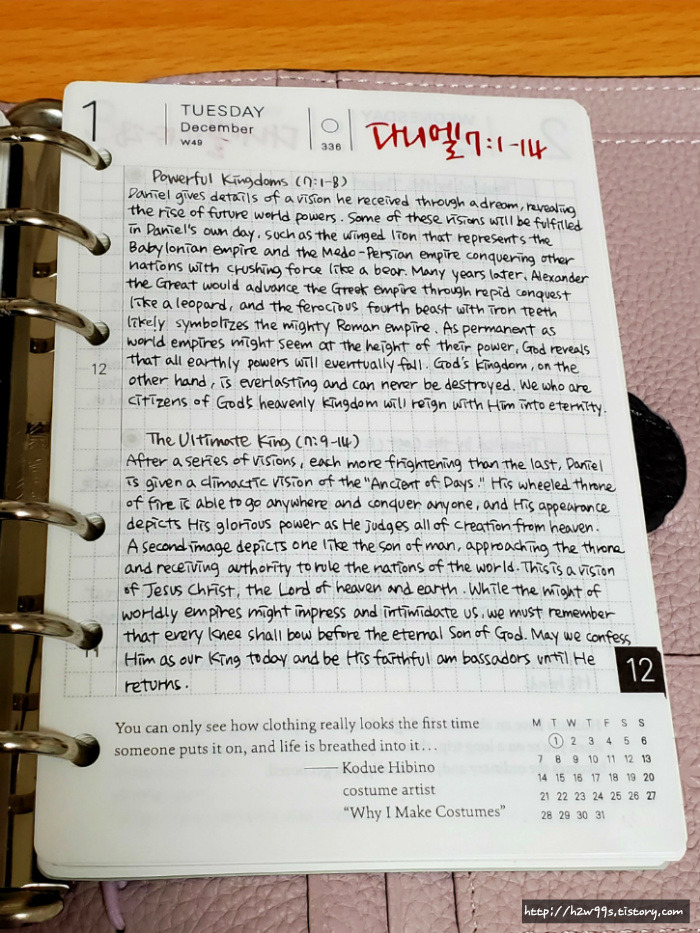 1
TUESDAY
December
W49
336
다니엘 7:1-14
Powerful Kingdoms (7:1-8)
Daniel gives details of a vision he received through a dream, revealing
the rise of future world powers. Some of these visions will be fulfilled
in Daniel's own day, such as the winged lion that represents the
Babylonian empire and the Medo-Persian empire conquering other
nations with crushing force like a bear. Many years later, Alexander
the Great would advance the Greek empire through repid conquest
like a leopard, and the ferocious fourth beast with iron teeth
likely symbolizes the mighty Roman empire. As permanent as
world empires might seem at the height of their power, God reveals
12
that all earthly powers will eventually fall. God's kingdom, on the
other hand, is everlasting and can never be destroyed. We who are
citizens of God's heavenly kingdom will reign with Him into eternity.
The Ultimate King (7:9-14)
After a series of visions, each more frightening than the last, Daniel
is given a climactic vision of the "Ancient of Days." His wheeled throne
of fire is able to go anywhere and conquer anyone, and His appearance
depicts His glorious power as He judges all of creation from heaven.
A second image depicts one like the son of man, approaching the throne
and receiving authority to rule the nations of the world. This is a vision
of Jesus Christ, the Lord of heaven and earth. While the might of
worldly empires might impress and intimidate us, we must remember
that every knee shall bow before the eternal Son of God. May we confess
Him as our King today and be His faithful am bassadors until He
returns.
12
You can only see how clothing really looks the first time
someone puts it on, and life is breathed into it…
—— Kodue Hibino
costume artist
"Why I Make Costumes"
M T W T F S S
1 2 3 4 5 6
7 8 9 10 11 12 13
14 15 16 17 18 19 20
21 22 23 24 25 26 27
28 29 30 31
http://h2w99s.tistory.com